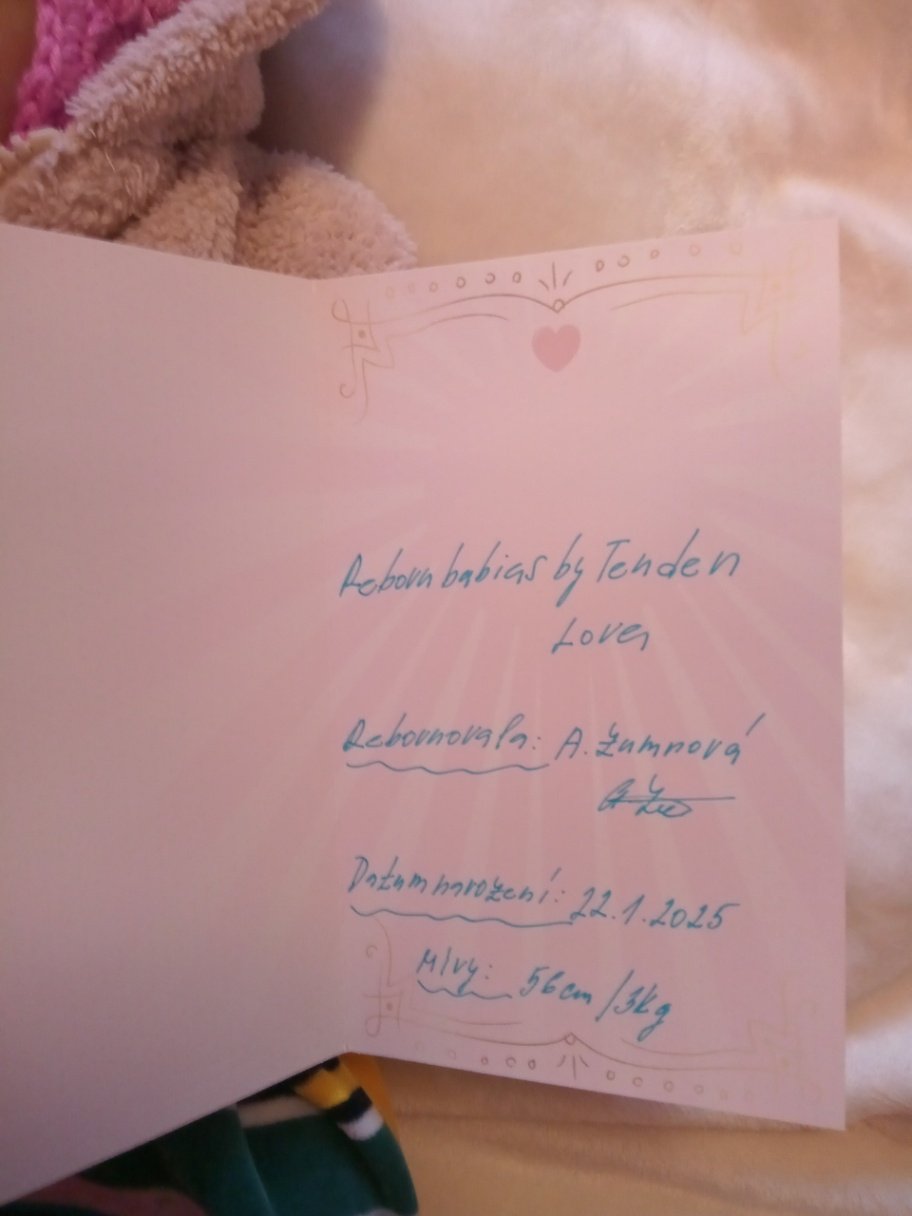 Reborn babies by Tender
Love
Rebornovala: A. Žumrová
Datum narození: 22.1.2025
Míry: 56cm/3kg